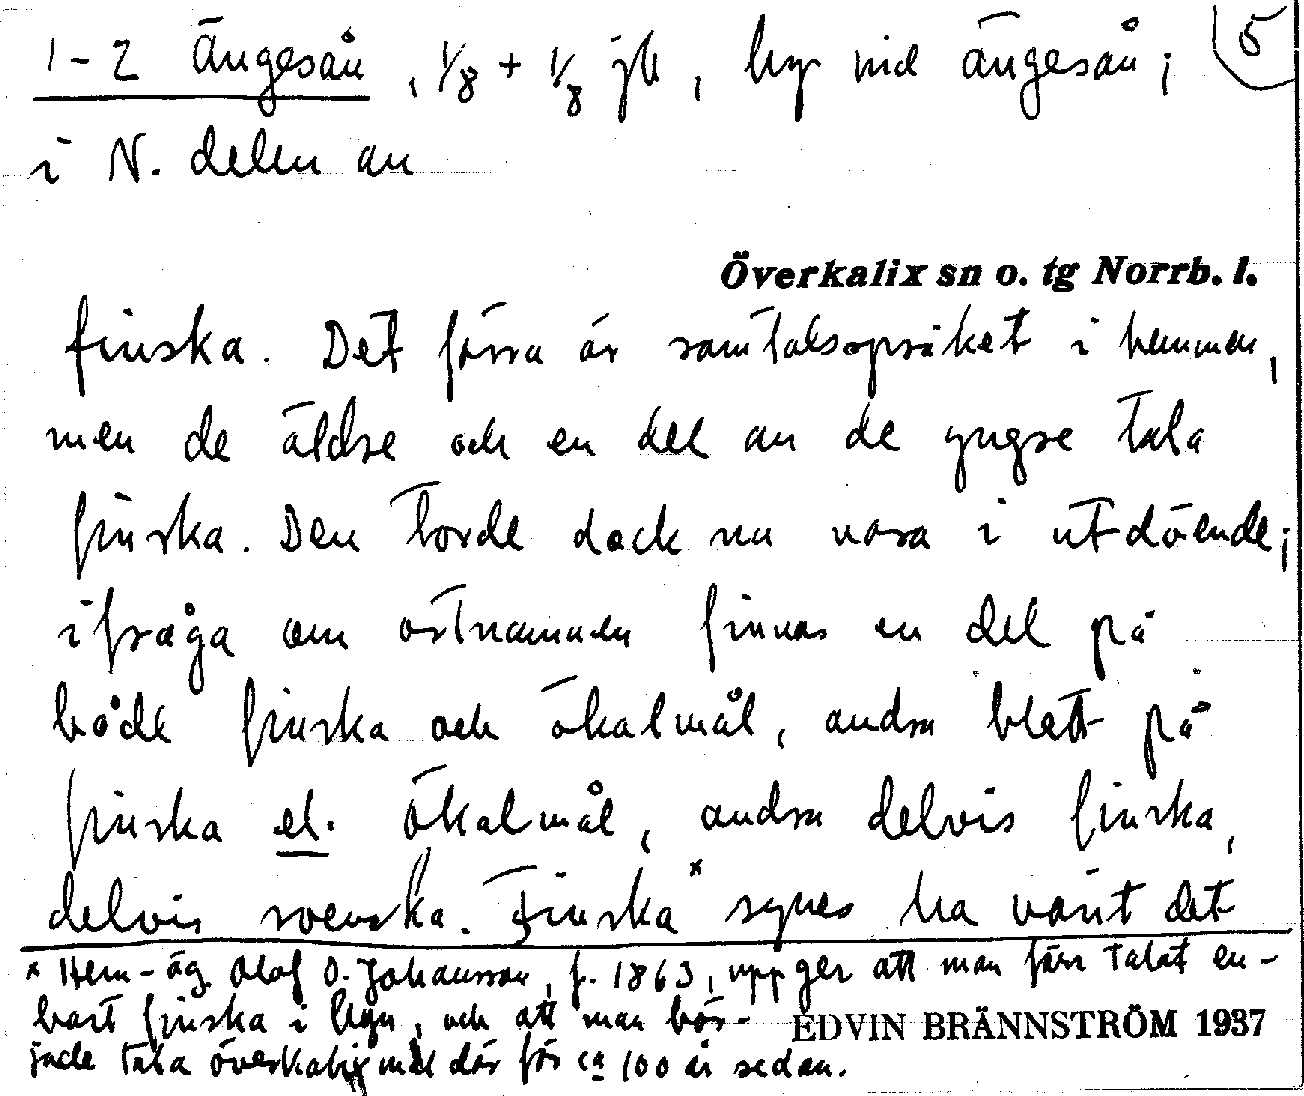 1-2 Ängesån, 1/8 + 1/8 jb, by vid ängesån; 5
i N. delen av
Överkalix sn o. tg Norrb. l.
finska. Det förra är samtalsspråket i hemmen,
men de äldre och en del av de yngre tala
finska. Den torde dock nu vara i utdöende;
ifråga om ortnamnen finnas en del på
både finska och ökalmål, andra blott på
finska el. ökalmål, andra delvis finska,
delvis svenska. Finska x synes ha varit det
x Hem-äg. Olof O. Johansson, f. 1863, uppger att man förr talat en-
bart finska i byn, och att man bör-
EDVIN BRÄNNSTRÖM 1937
jade tala överkalixmål där för ca 100 år sedan.